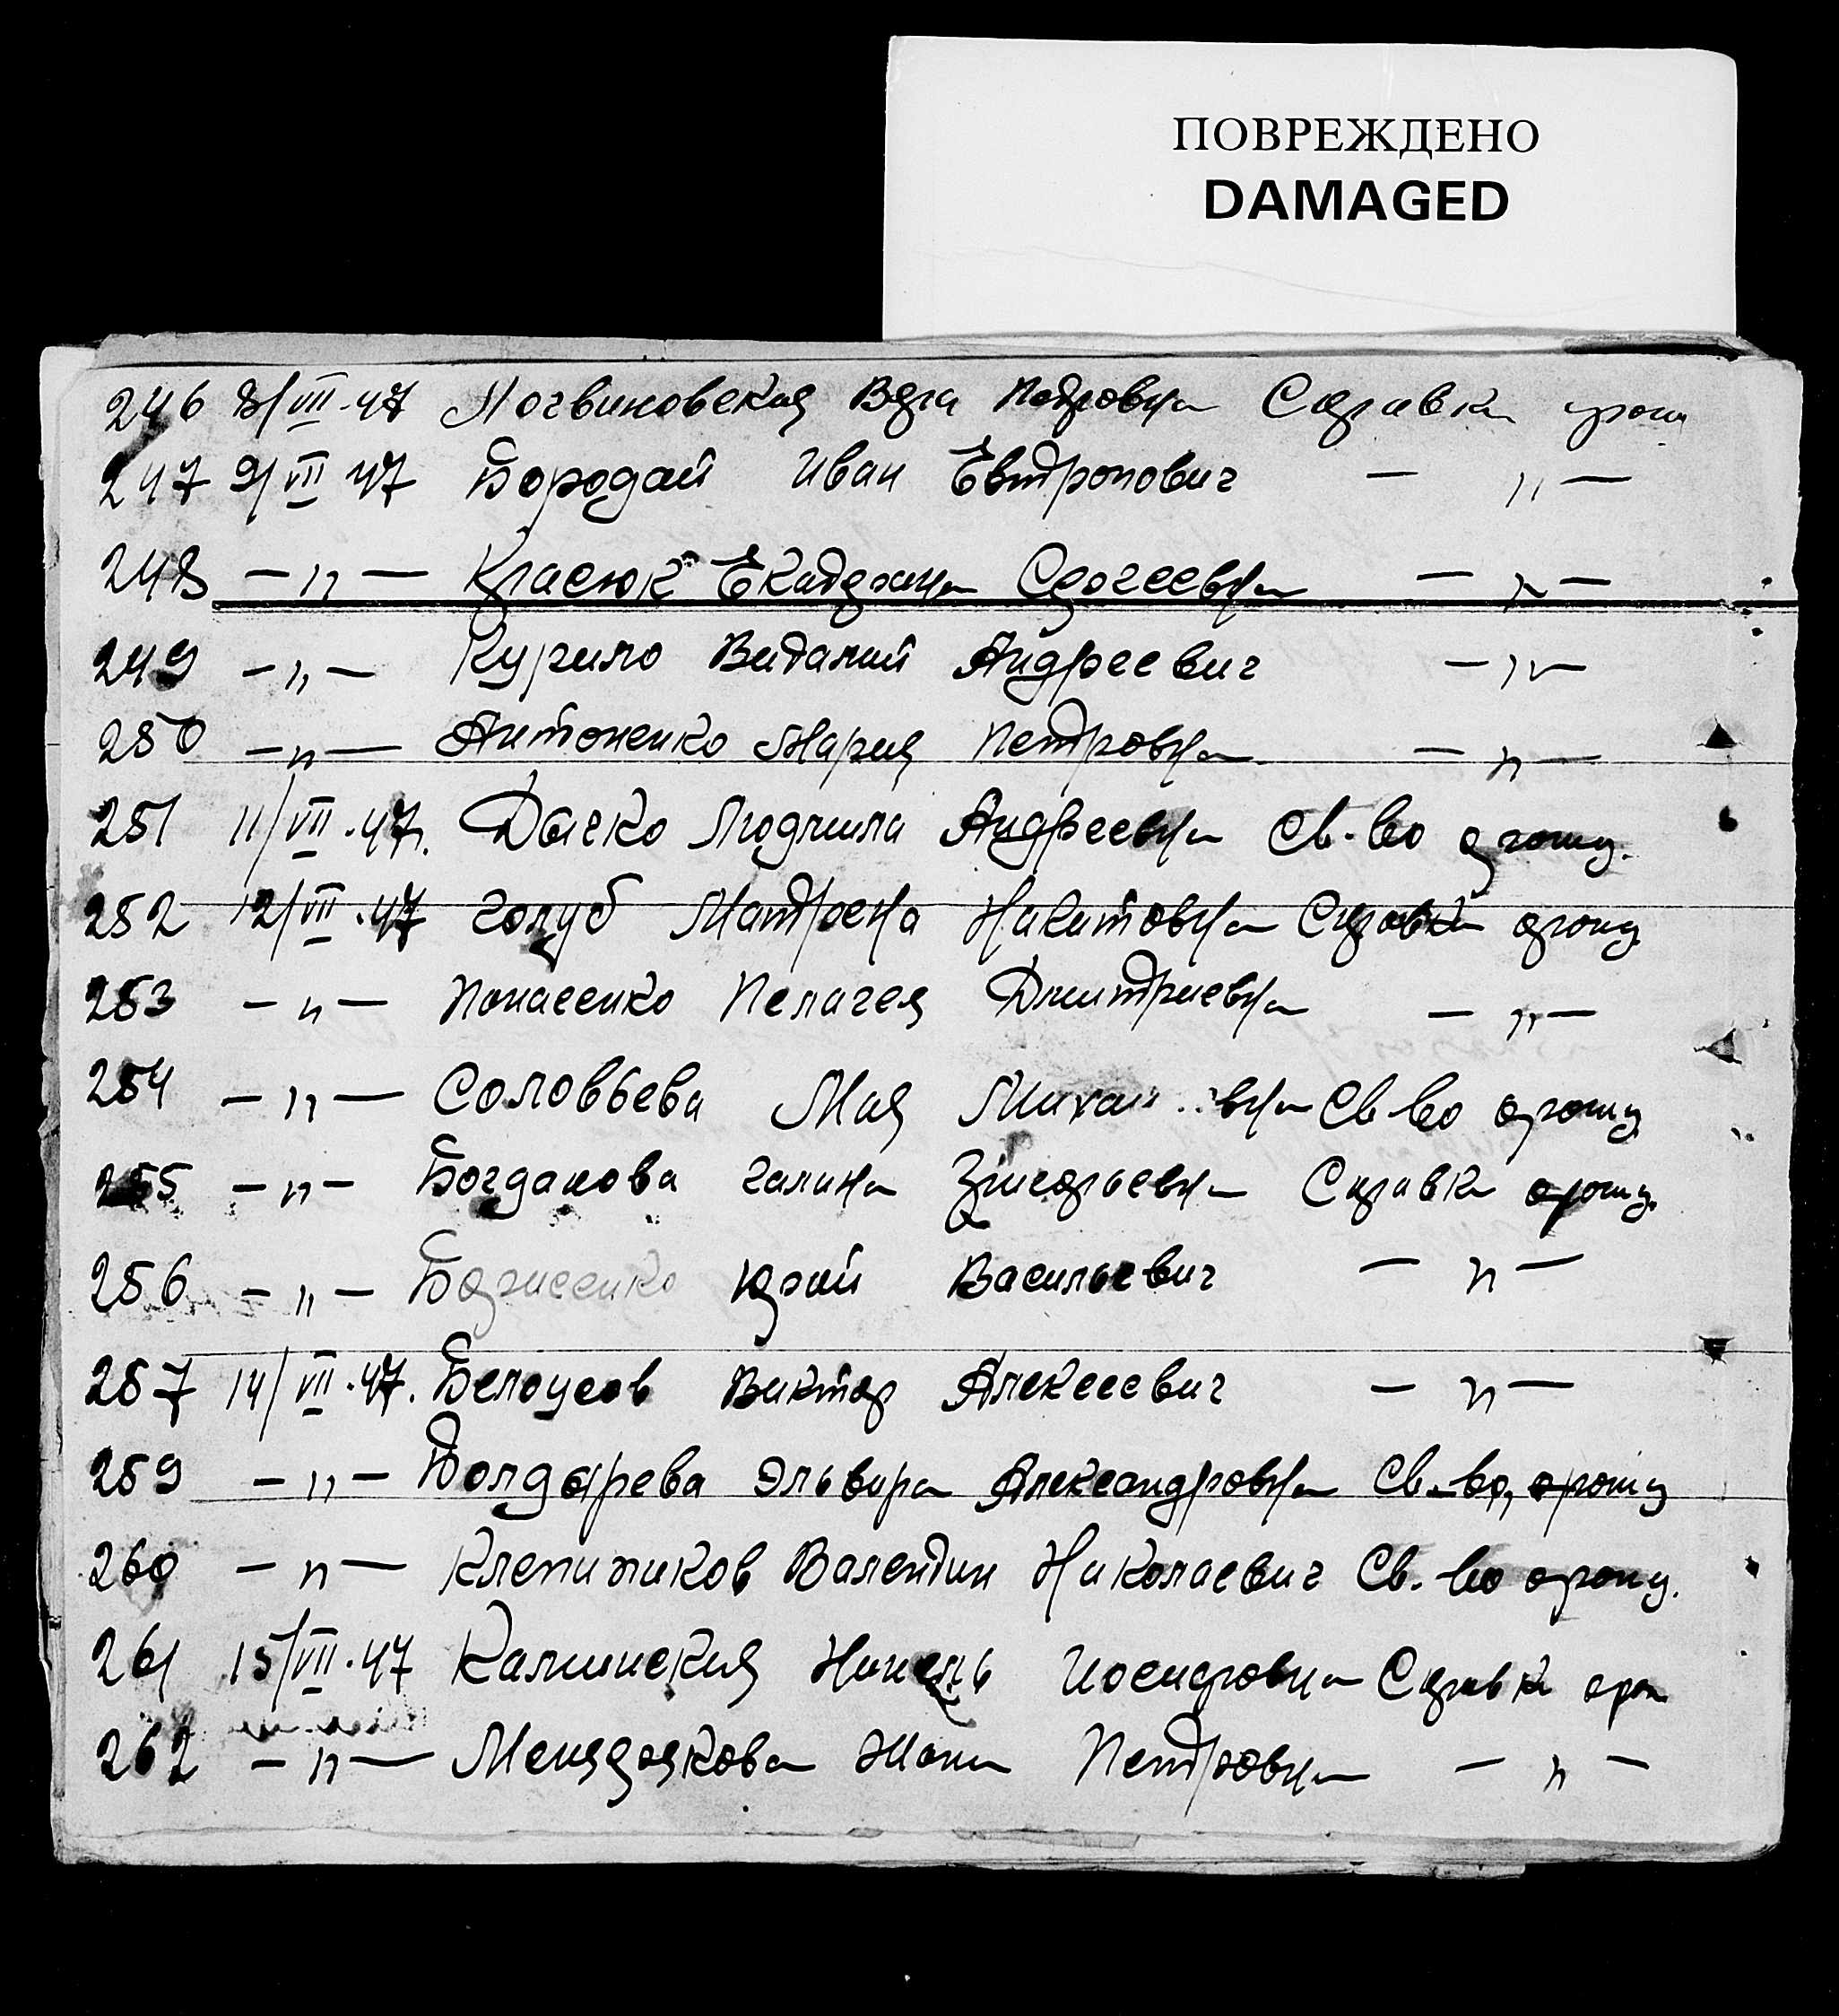 ПОВРЕЖДЕНО
DAMAGED
246 8/VII-47 Логвиновская Вера Петровна Справка
247 9/VII 47 Бородай Иван Евтропович — " —
248 — " — Красюк Екатерина Сергеевна — " —
249 — " — Курило Виталий Андреевич — " —
250 — " — Антоненко Мария Петровна — " —
251 11/VII-47. Дычко Людмила Андреевна Св-во о рожд.
252 12/VII-47 Голуб Матрена Никитовна Справка о рожд.
253 — " — Понасенко Пелагея Дмитриевна — " —
254 — " — Соловьева Мая Св-во о рожд
255 — " — Богданова Галина Григорьевна Справка о рожд.
256 — " — Борисенко Юрий Васильевич — " —
257 14/VII-47. Белоусов Виктор Алексеевич — " —
259 — " — Болдырева Эльвира Александровна Св-во о рожд
260 — " — Клепиков Валентин Николаевич Св-во о рожд.
261 15/VII-47 Калминская Нинель Иосифовна Справк о рож
262 — " — Петровна — " —